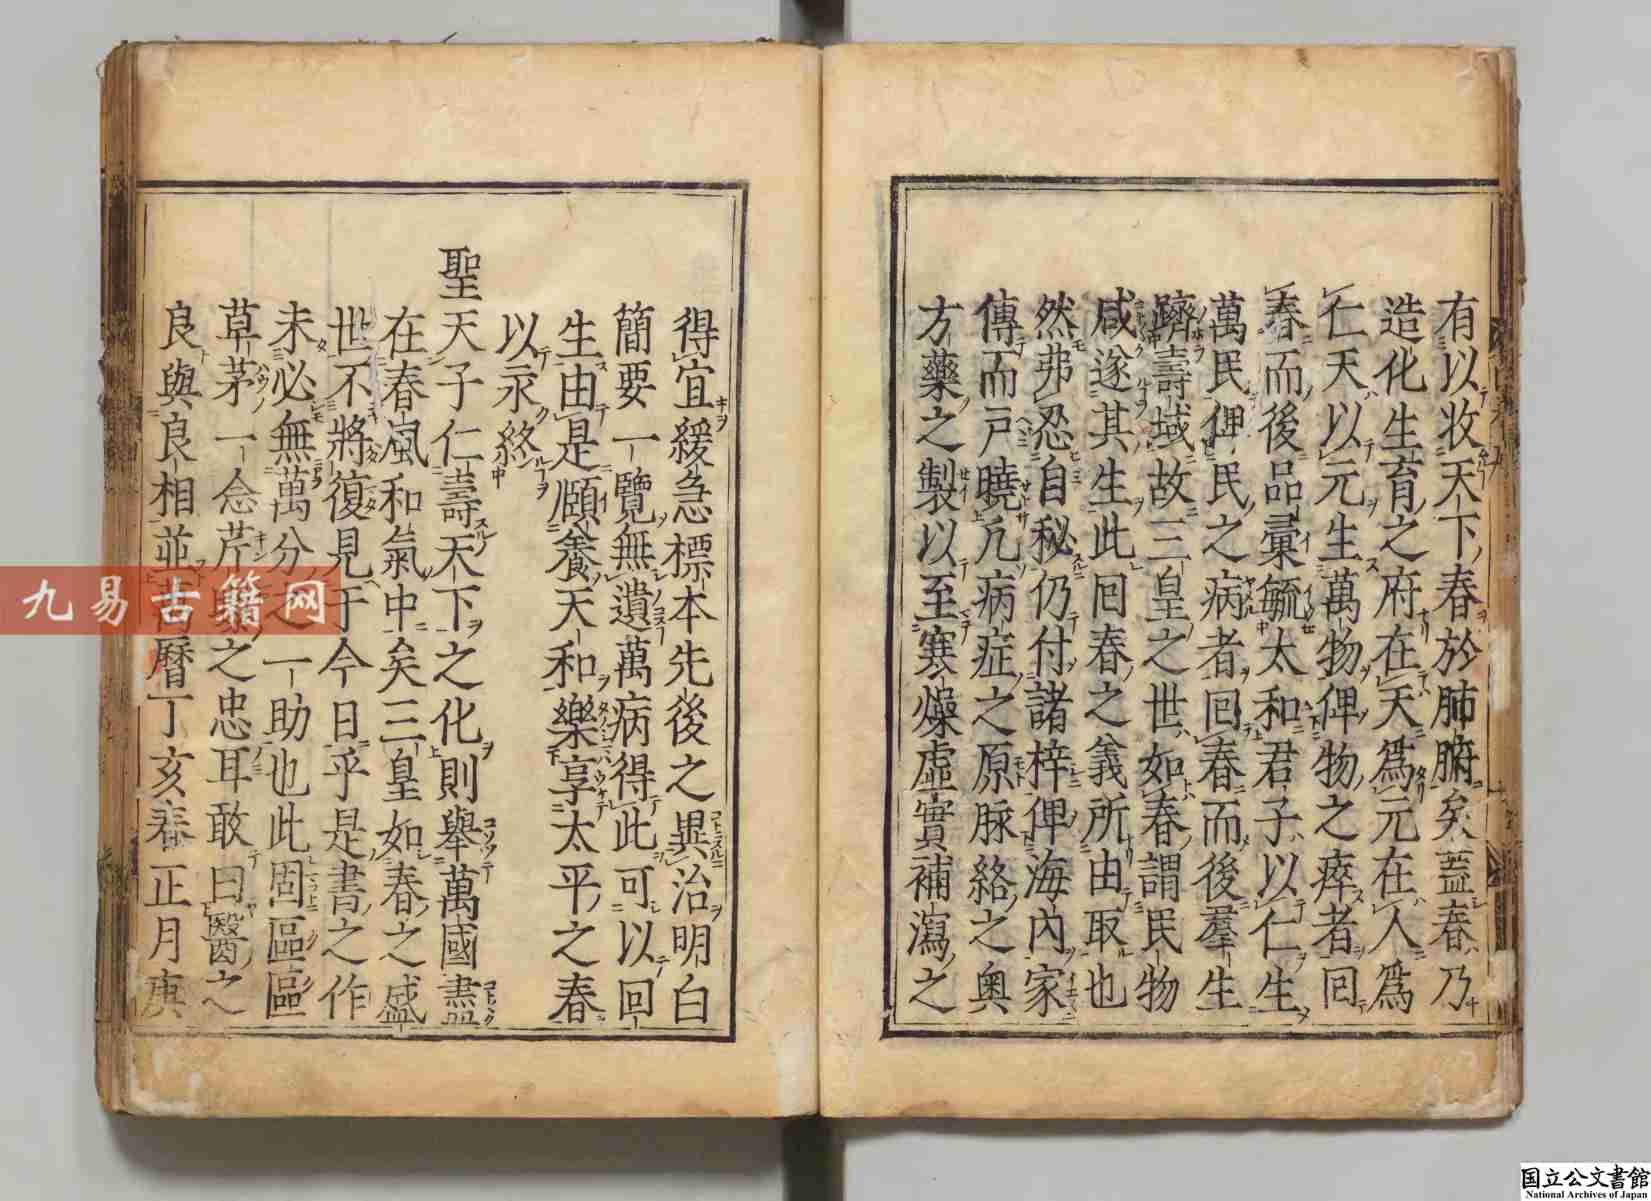 有以牧天下春於肺腑矣蓋春乃
造化生育之府在天爲元在人爲
仁天以元生萬物俾物之瘁者囘
春而後品彙毓太和君子以仁生
萬民俾民之病者囘春而後羣生
躋壽域故三皇之世如春謂民物
咸遂其生此囘春之義所由取也
然弗忍自秘仍付諸梓俾海內家
傳而戸曉凡病症之原脉絡之奧
方藥之製以至寒燥虛實補瀉之
得宜緩急標本先後之異治明白
簡要一覽無遺萬病得此可以囘
生由是頤養天和樂享太平之春
以永終
聖天子仁壽天下之化則舉萬國盡
在春風和氣中矣三皇如春之盛
世不將復見于今日乎是書之作
未必無萬分之一助也此固區區
草茅一念芹之忠耳敢曰醫之
良與良相並曆丁亥春正月庚
九易古籍网
国立公文書館
National Archives of Japan